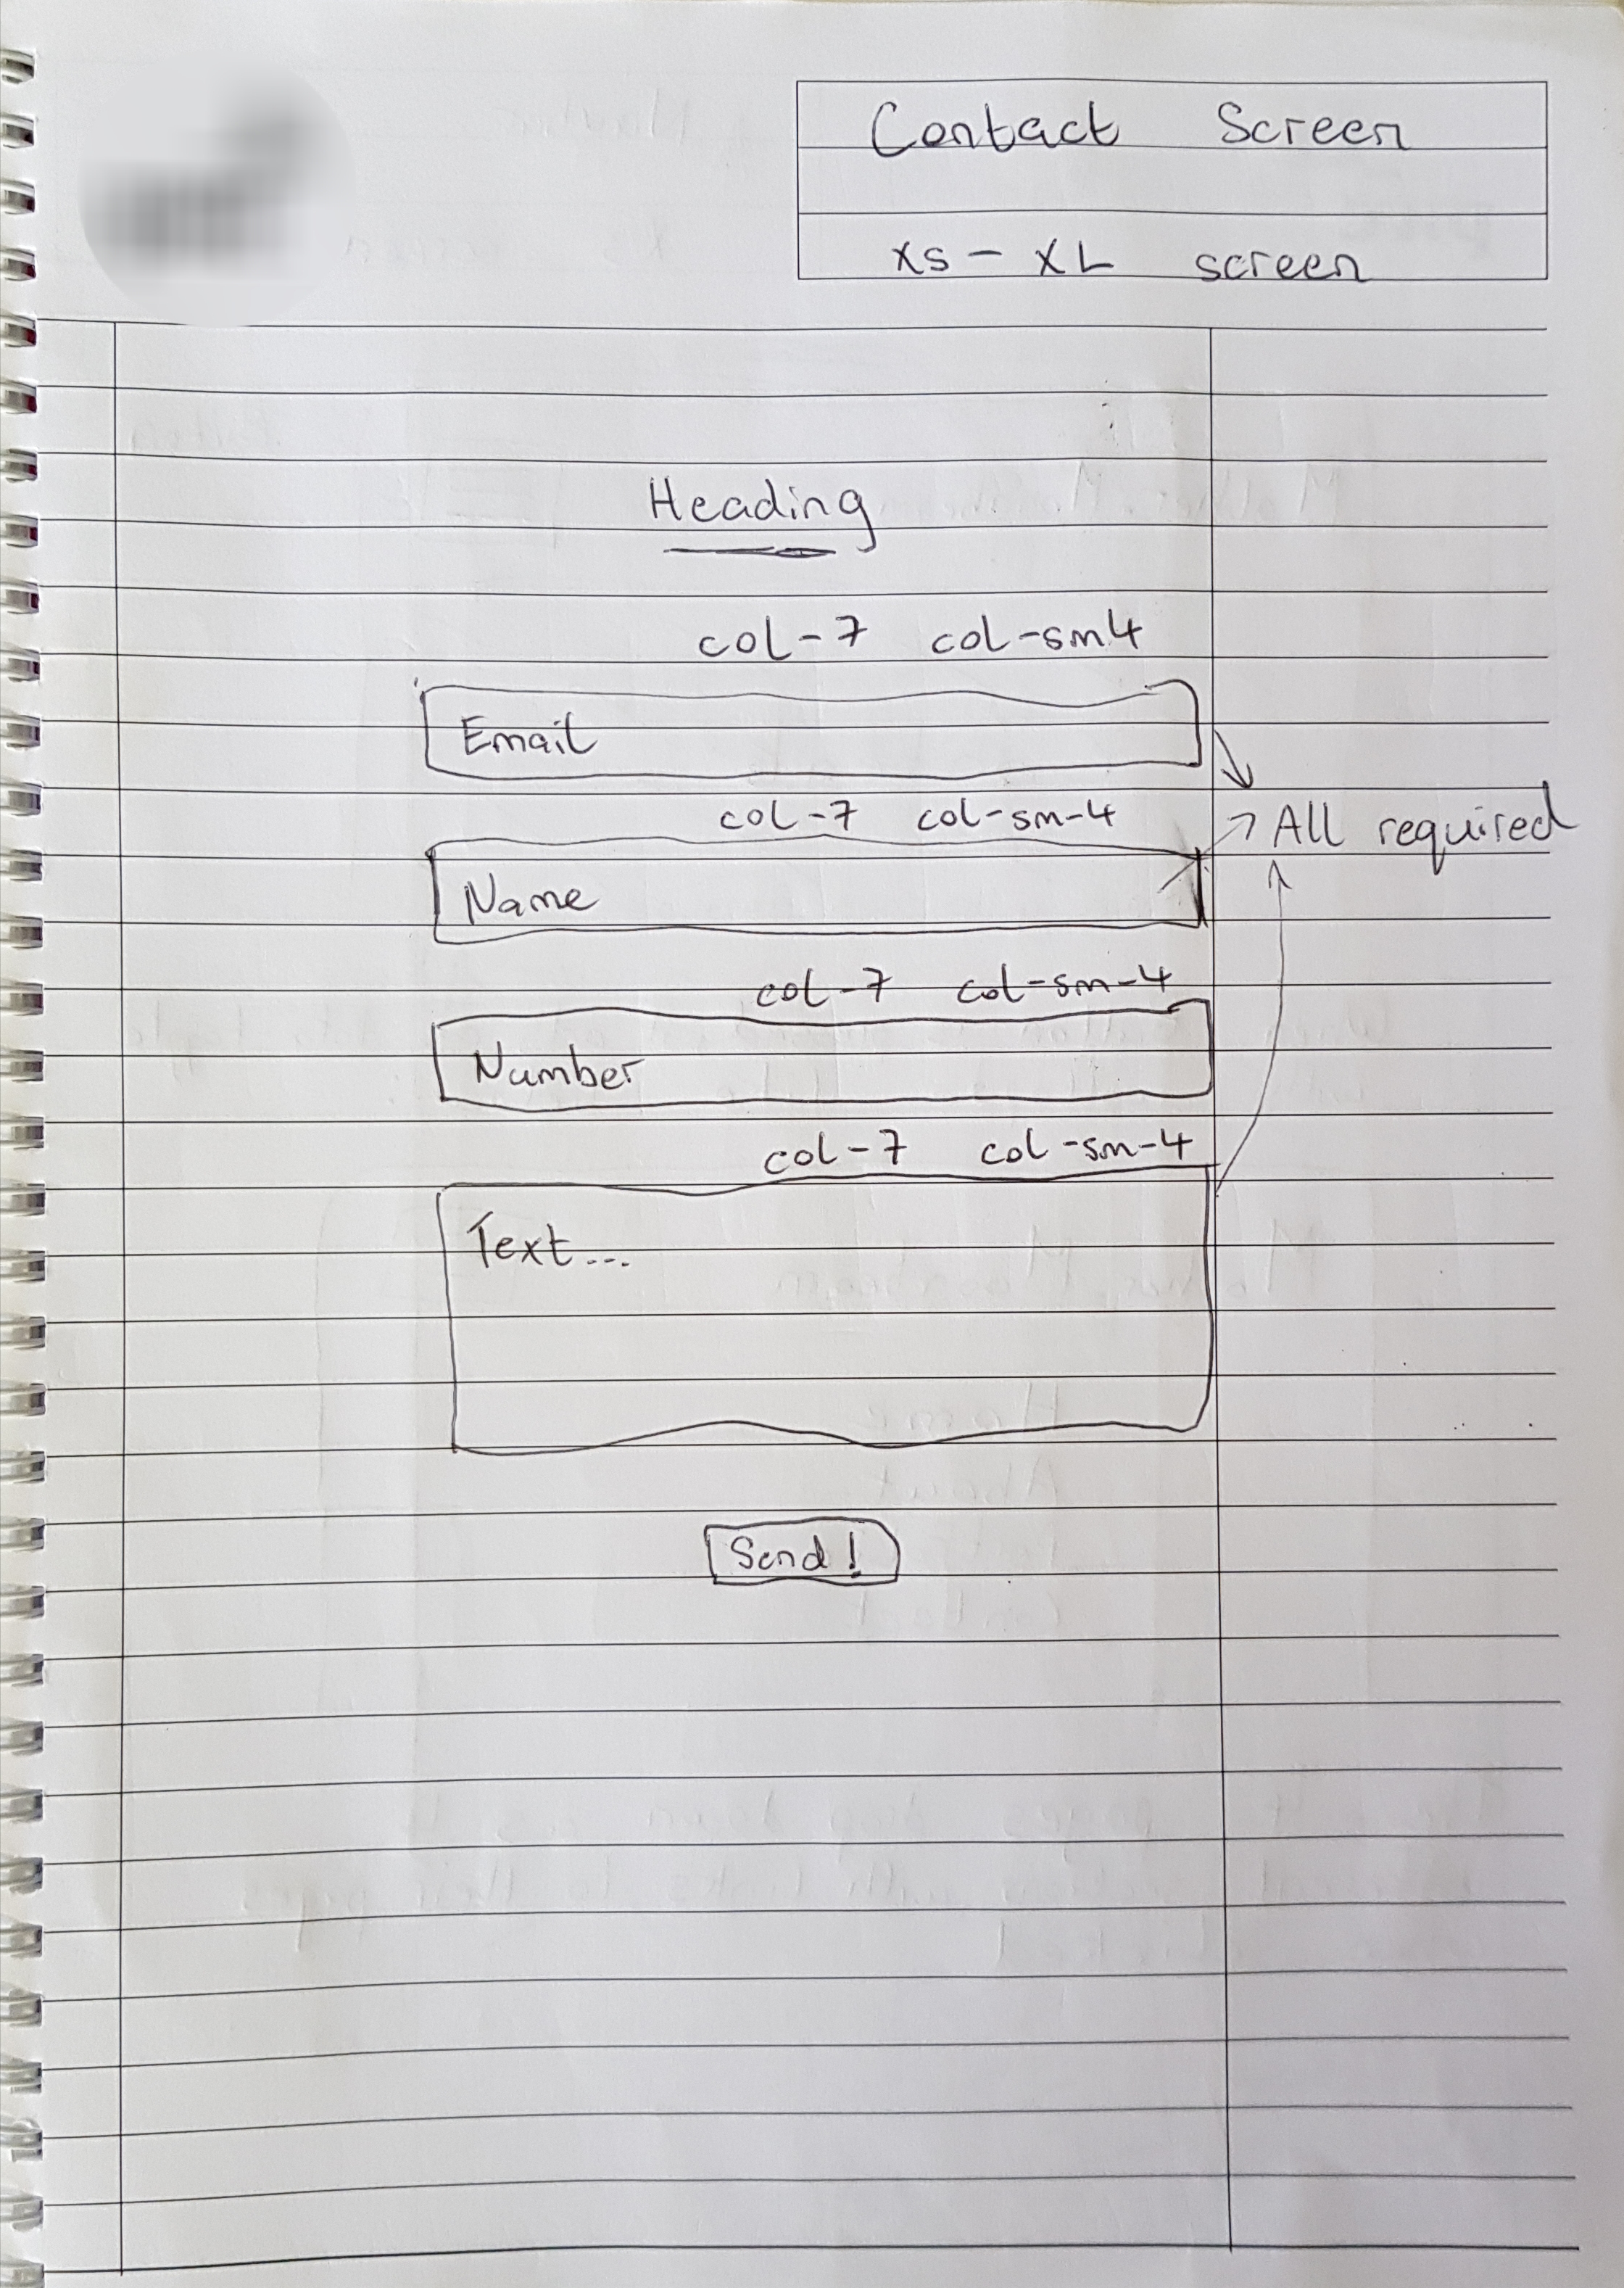 Contact Screen
xs - XL screen
Heading
col-7 col-sm4
Email
col-7 col-sm-4
All required
Name
col-7 col-sm-4
Number
col-7 col-sm-4
Text...
Send!